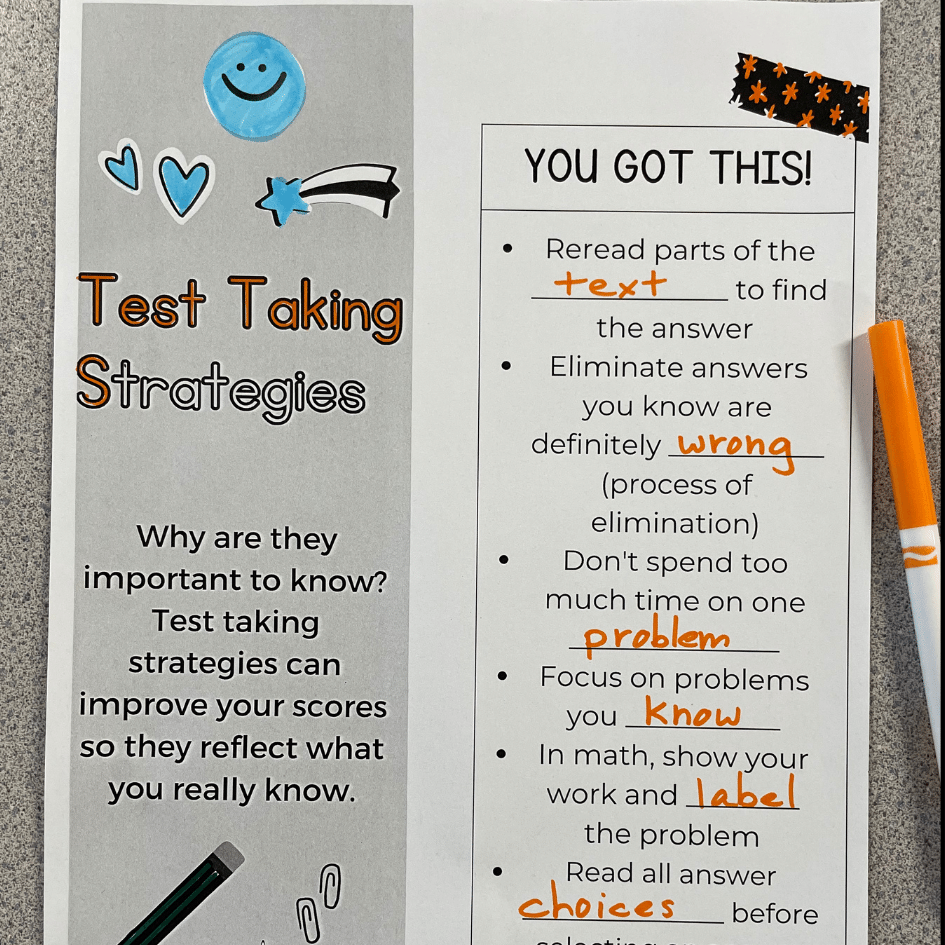 Test Taking
Strategies
Why are they
important to know?
Test taking
strategies can
improve your scores
so they reflect what
you really know.
YOU GOT THIS!
• Reread parts of the
text to find
the answer
• Eliminate answers
you know are
definitely wrong
(process of
elimination)
• Don't spend too
much time on one
problem
• Focus on problems
you know
• In math, show your
work and label
the problem
• Read all answer
choices before